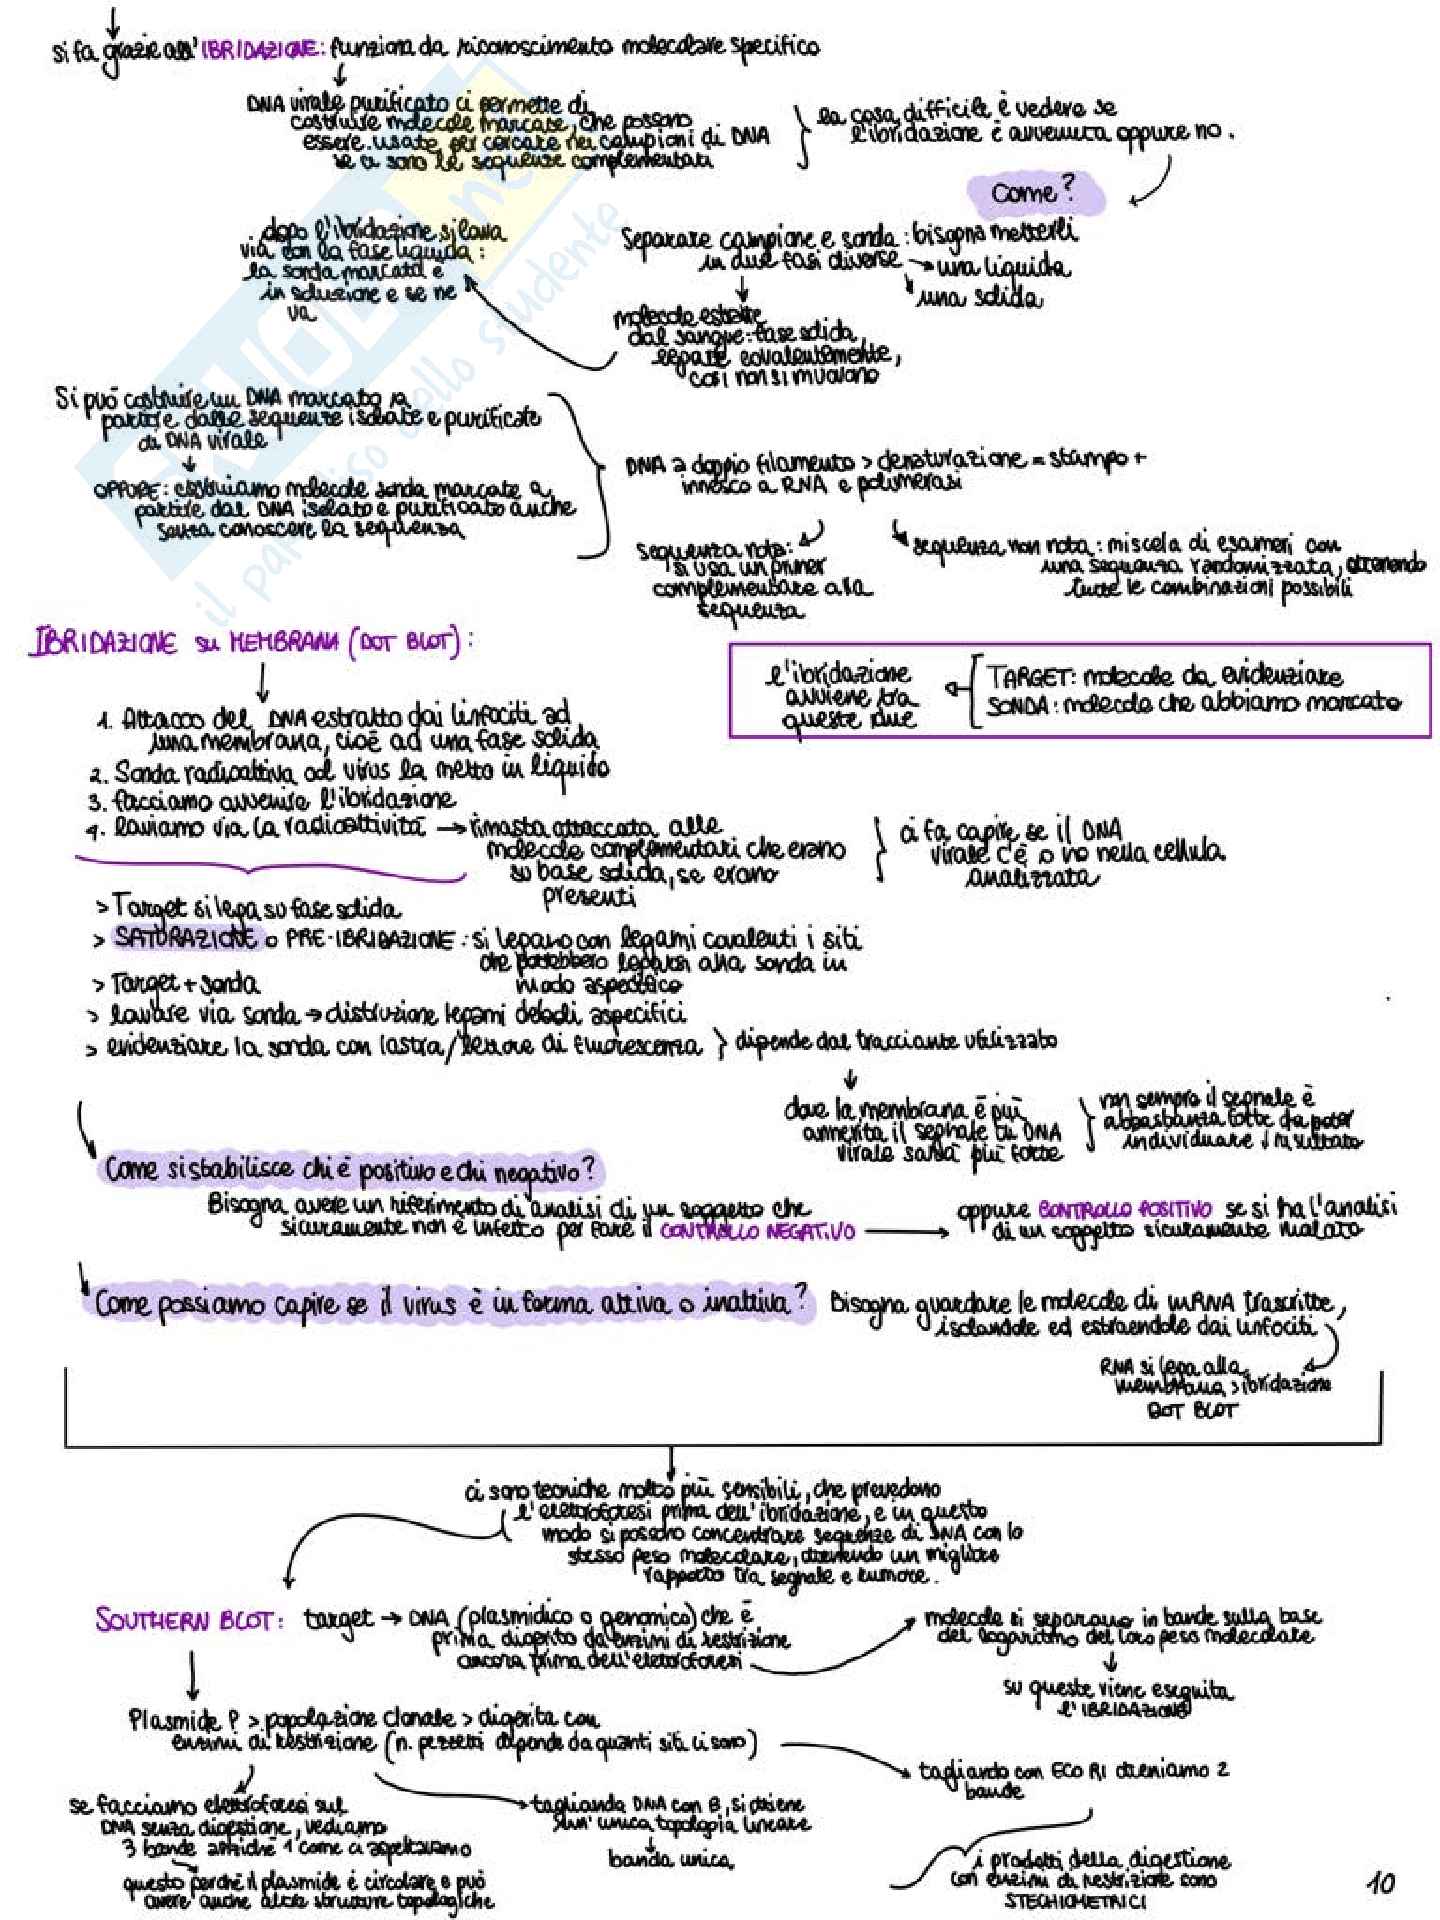 si fa grazie all'IBRIDAZIONE: funziona da riconoscimento molecolare specifico
DNA virale purificato ci permette di
costruire molecole marcate, che possono
essere usate per cercare nei campioni di DNA
se ci sono le sequenze complementari
la cosa difficile è vedere se
l'ibridazione è avvenuta oppure no.
Come?
Separare campione e sonda: bisogna metterli
in due fasi diverse → una liquida
una solida
dopo l'ibridazione si lava
via con la fase liquida:
la sonda marcata è
in soluzione e se ne
va
molecole estratte
dal sangue: fase solida,
legate covalentemente,
così non si muovono
Si può costruire un DNA marcato a
partire dalle sequenze isolate e purificate
di DNA virale
OPPURE: costruiamo molecole sonda marcate a
partire dal DNA isolato e purificato anche
senza conoscere la sequenza
DNA a doppio filamento > denaturazione = stampo +
innesco a RNA e polimerasi
sequenza nota:
si usa un primer
complementare alla
sequenza
sequenza non nota: miscela di esameri con
una sequenza randomizzata, ottenendo
tutte le combinazioni possibili
IBRIDAZIONE su MEMBRANA (DOT BLOT):
l'ibridazione
avviene tra
queste due
TARGET: molecole da evidenziare
SONDA: molecole che abbiamo marcato
1. Attacco del DNA estratto dai linfociti ad
una membrana, cioè ad una fase solida
2. Sonda radioattiva del virus la metto in liquido
3. facciamo avvenire l'ibridazione
4. laviamo via la radioattività → rimasta attaccata alle
molecole complementari che erano
su base solida, se erano
presenti
ci fa capire se il DNA
virale c'è o no nella cellula
analizzata
> Target si lega su fase solida
> SATURAZIONE o PRE-IBRIDAZIONE: si legano con legami covalenti i siti
che potrebbero legarsi alla sonda in
modo aspecifico
> Target + sonda
> lavare via sonda → distruzione legami deboli aspecifici
> evidenziare la sonda con lastra/lettore di fluorescenza } dipende dal tracciante utilizzato
dove la membrana è più
annerita il segnale di DNA
virale sarà più forte
non sempre il segnale è
abbastanza forte da poter
individuare i risultato
Come si stabilisce chi è positivo e chi negativo?
Bisogna avere un riferimento di analisi di un soggetto che
sicuramente non è infetto per fare il CONTROLLO NEGATIVO
oppure CONTROLLO POSITIVO se si ha l'analisi
di un soggetto sicuramente malato
Come possiamo capire se il virus è in forma attiva o inattiva? Bisogna guardare le molecole di mRNA trascritte,
isolandole ed estraendole dai linfociti
RNA si lega alla
membrana > ibridazione
DOT BLOT
ci sono tecniche molto più sensibili, che prevedono
l'elettroforesi prima dell'ibridazione, e in questo
modo si possono concentrare sequenze di DNA con lo
stesso peso molecolare, ottenendo un migliore
rapporto tra segnale e rumore.
SOUTHERN BLOT: target → DNA (plasmidico o genomico) che è
prima digerito da enzimi di restrizione
ancora prima dell'elettroforesi
molecole si separano in bande sulla base
del logaritmo del loro peso molecolare
su queste viene eseguita
l'IBRIDAZIONE
Plasmide P > popolazione clonale > digerita con
enzimi di restrizione (n. pezzetti dipende da quanti siti ci sono)
tagliando con ECO RI otteniamo 2
bande
se facciamo elettroforesi sul
DNA senza digestione, vediamo
3 bande anziché 1 come ci aspettavamo
questo perché il plasmide è circolare e può
avere anche altre strutture topologiche
tagliando DNA con B, si ottiene
un'unica topologia lineare
banda unica
i prodotti della digestione
con enzimi di restrizione sono
STECHIOMETRICI
10
il paradiso dello studente